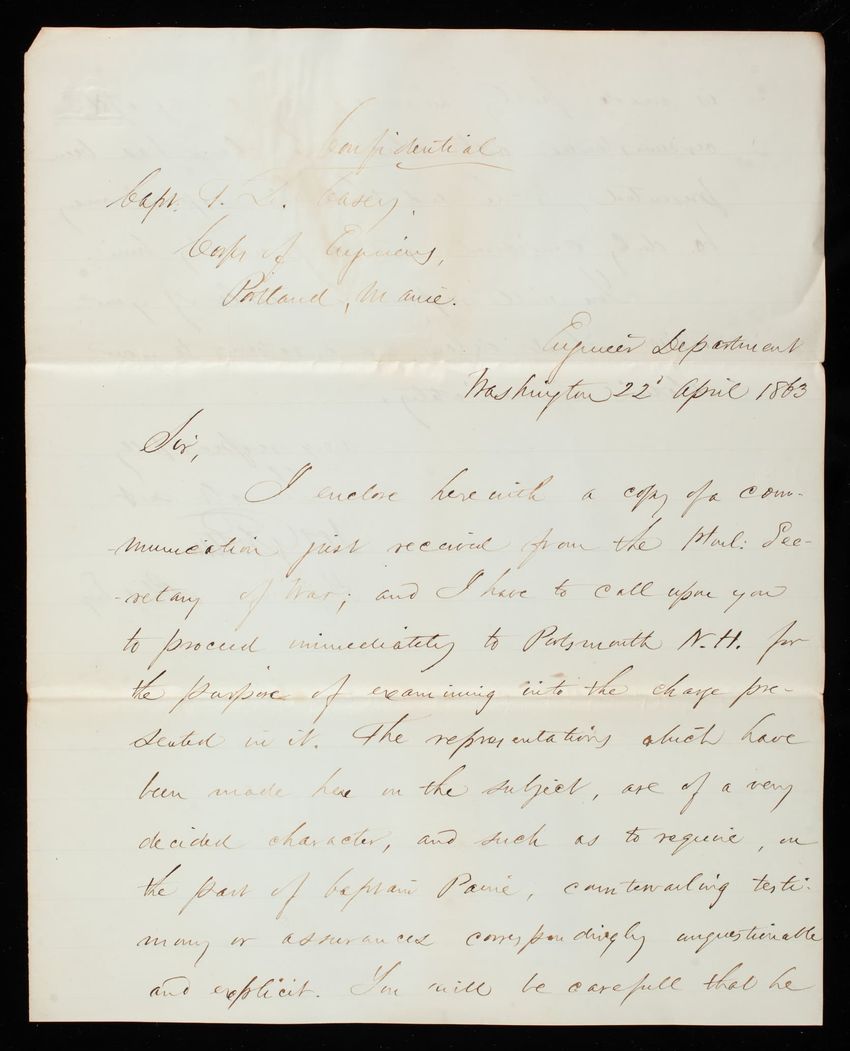 Confidential
Capt. T. L. Casey,
Corps of Engineers,
Portland, Maine.
Engineer Department
Washington 22' April 1863
Sir,
I enclose herewith a copy of a com-
-munication just received from the Hon: Sec-
-retary of War; and I have to call upon you
to proceed immediately to Portsmouth N.H. for
the purpose of examining into the charge pre-
sented in it. The representations which have
been made here on the subject, are of a very
decided character, and such as to require, on
the part of Captain Paine, countervailing testi-
mony or assurances correspondingly unquestionable
and explicit. You will be carefull that he